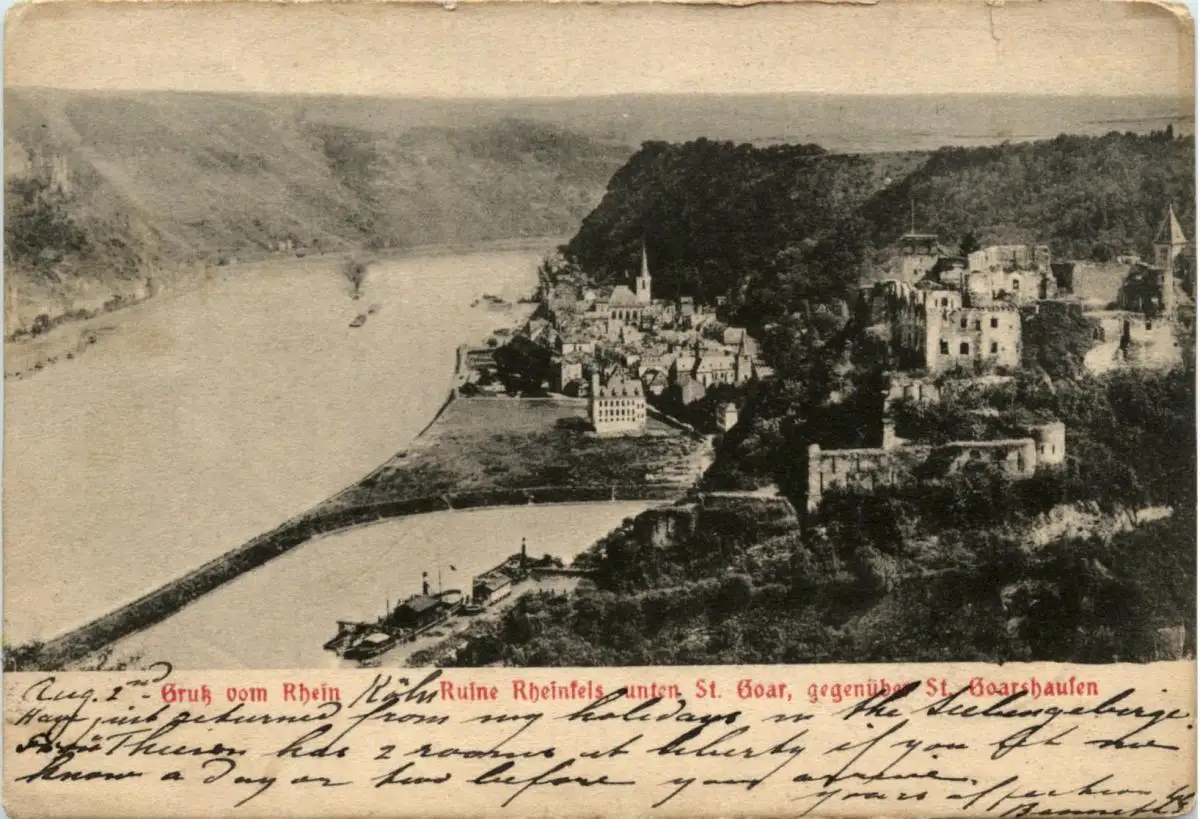 Aug. 2nd Gruß vom Rhein Köln Ruine Rheinfels, unten St. Goar, gegenüber St. Goarshausen
Have just returned from my holidays in the Siebengebirge.
Frau Thiesen has 2 rooms at liberty if you let me
know a day or two before you arrive.
yours affection
Bennett